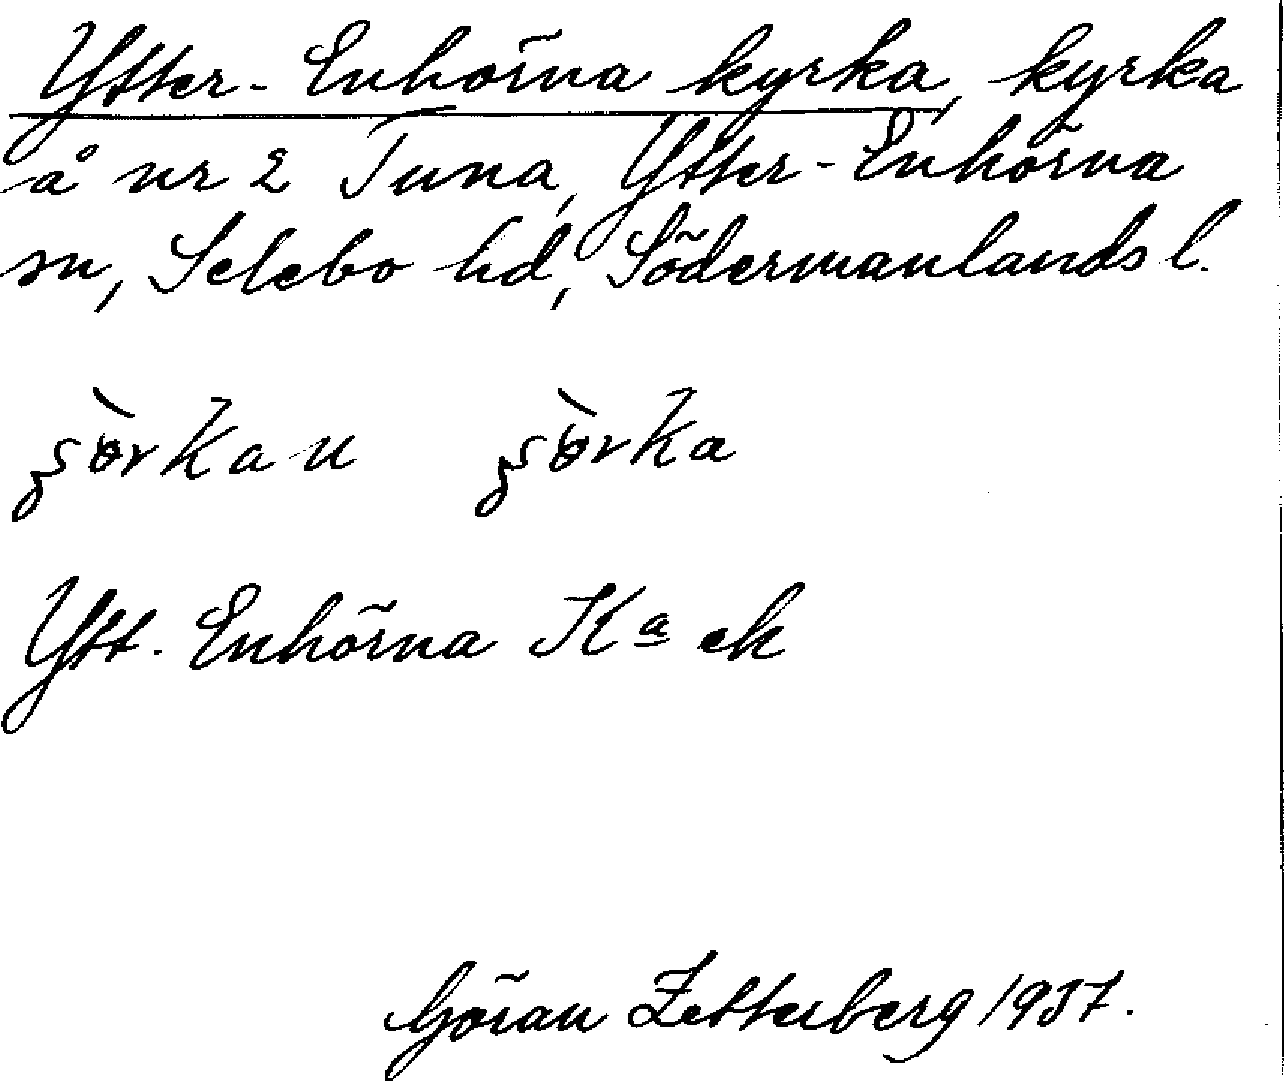 Ytter-Enhörna kyrka, kyrka
å nr 2 Tuna, Ytter-Enhörna
sn, Selebo hd, Södermanlands l.
Ytt. Enhörna Ka ek
Göran Zetterberg 1937.